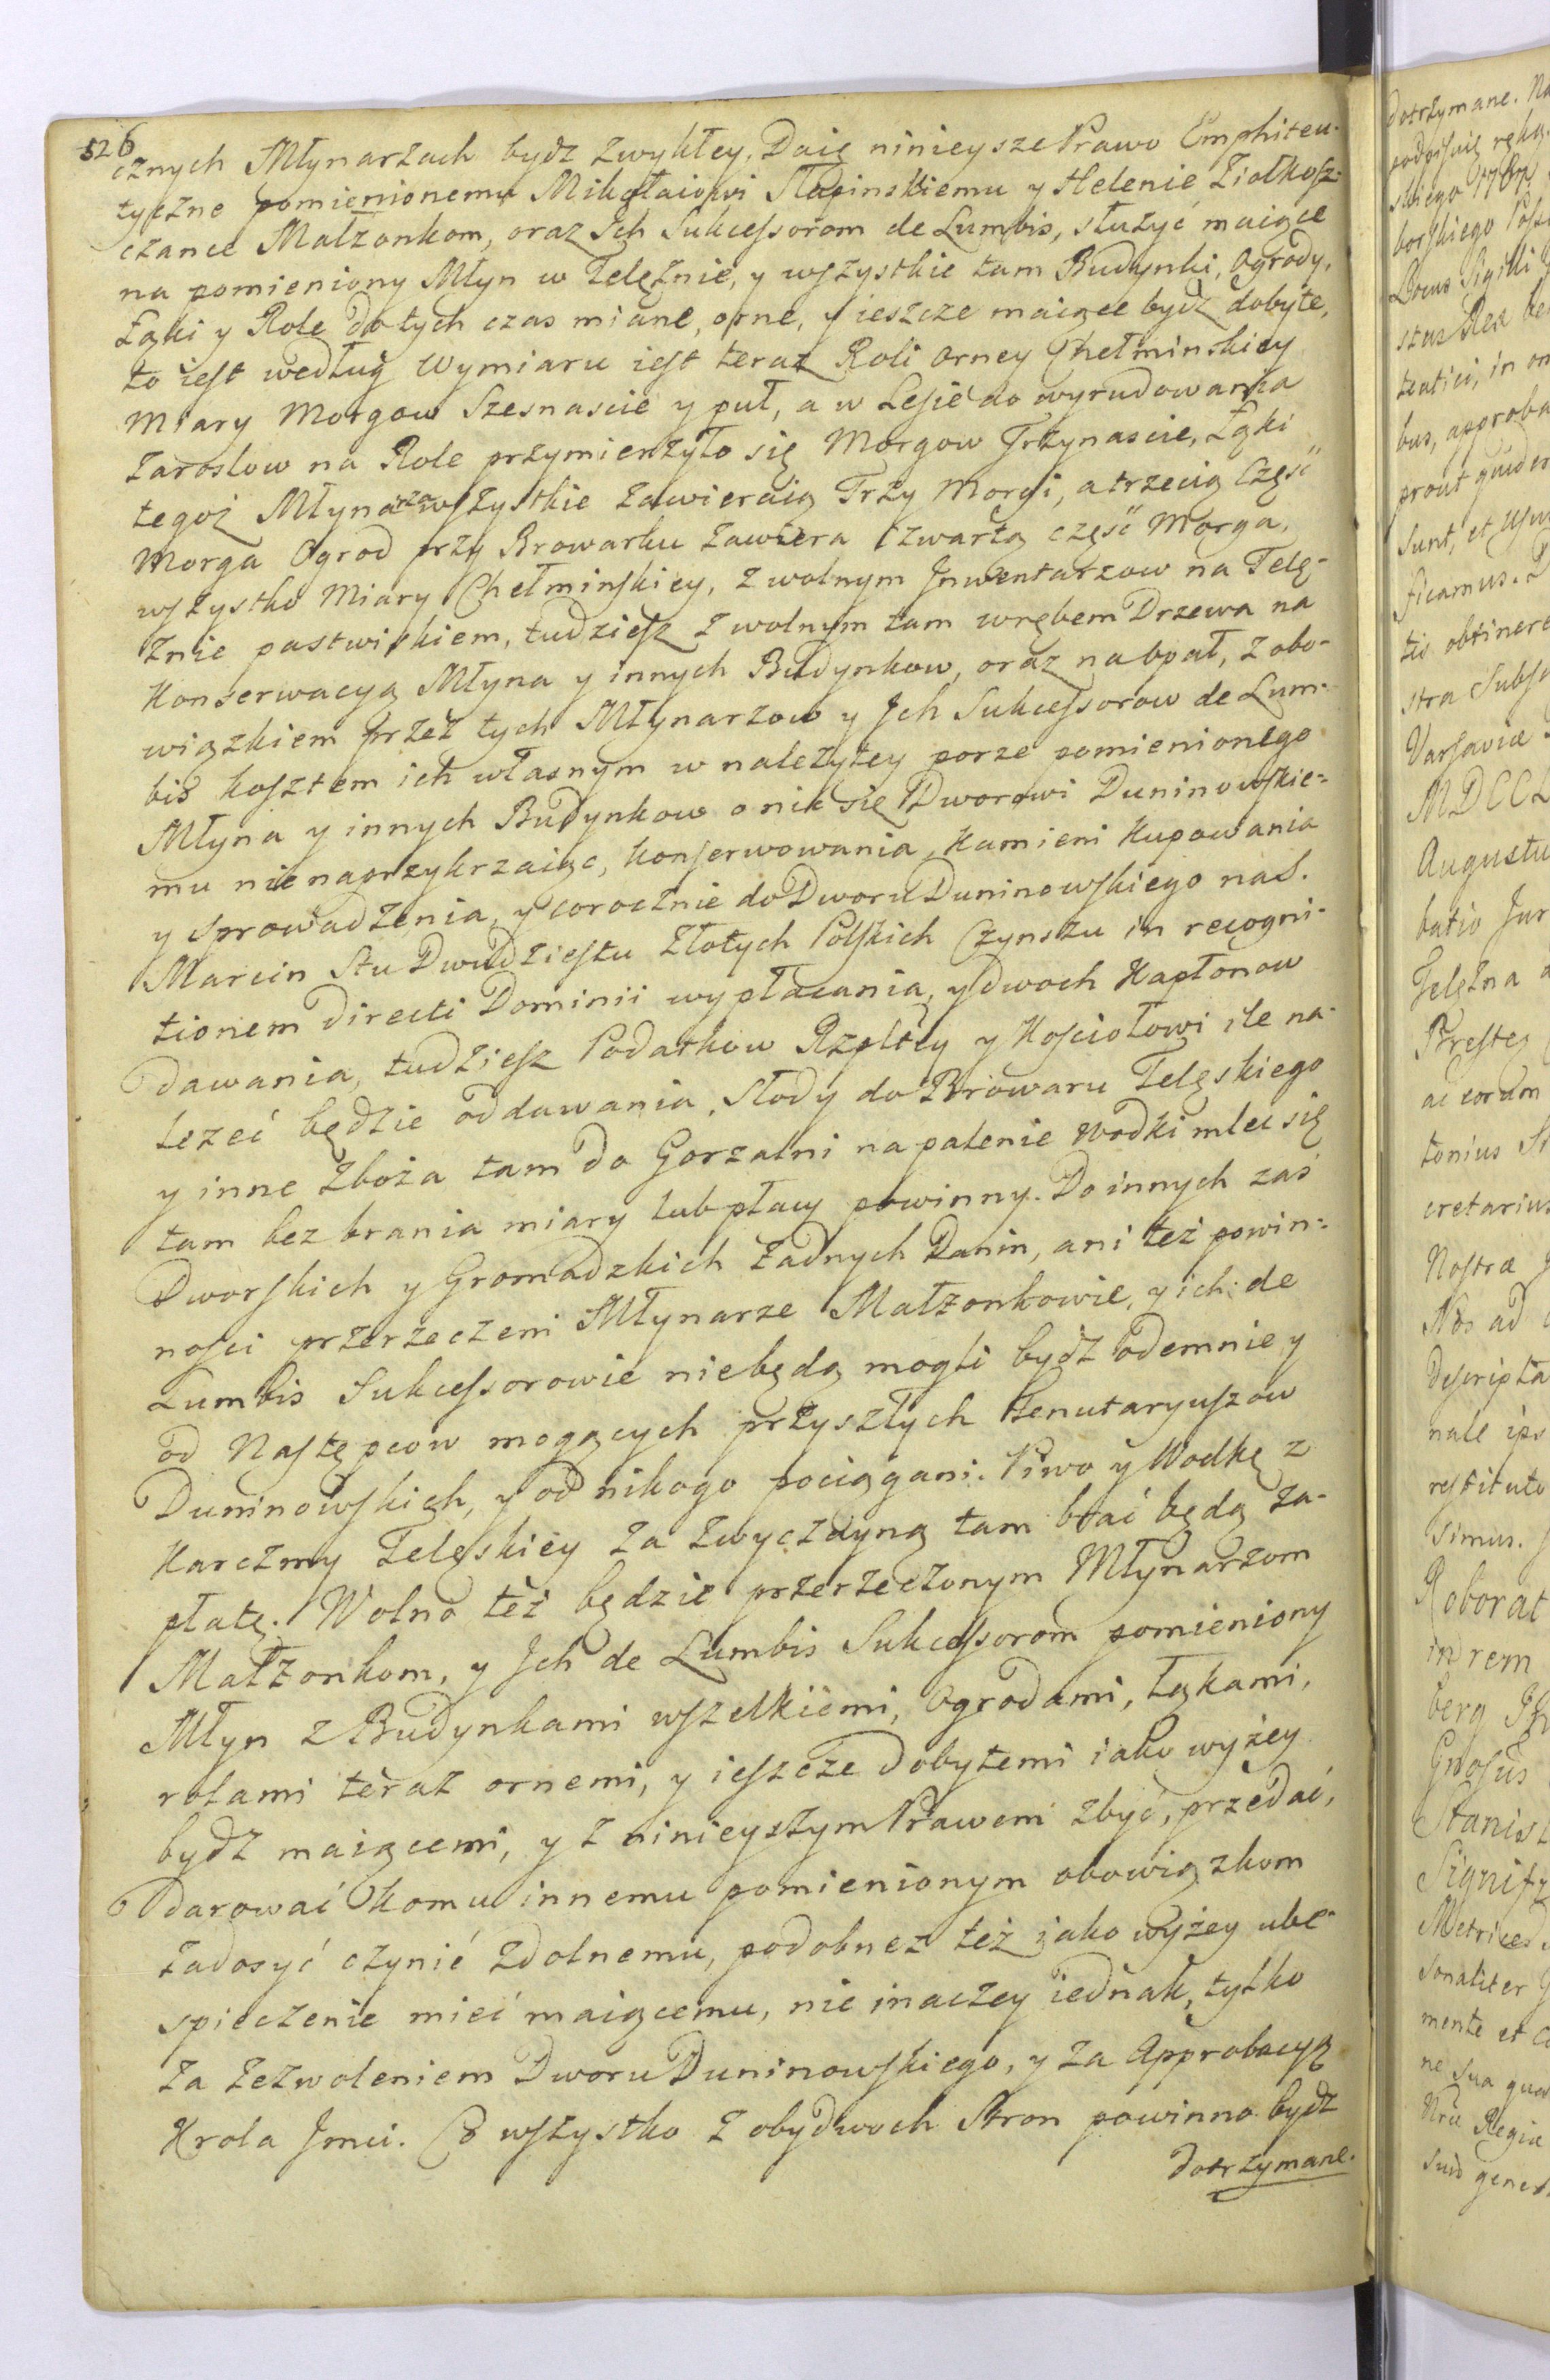 526
cznych Młynarzach bydz zwykłey, Daię ninieysze Prawo Emphiteu-
tyczne pomienionemu Mikołaiowi Stępinskiemu y Helenie Ziołkosz-
czance Małżonkom, oraz Ich Sukcessorom de Lumbis, służyć maiące
na pomieniony Młyn w Telęźnie, y wszystkie tam Budynki, Ogrody,
Łąki y Role do tych czas miane, orne, y ieszcze maiące bydź dobyte,
to iest według Wymiaru iest teraz Roli orney Chełminskiey
Miary Morgow Szesnascie y puł, a w Lesie do wyrudowania
Zaroslow na Role przymierzyło się Morgow Trzynascie, Łąki
tegoż Młynarza wszystkie zawieraią Trzy Morgi, a trzecią Część
Morga Ogrod przy Browarku zawiera Czwartą część Morga,
wszystko Miary Chełminskiey, z wolnym Inwentarzow na Telę-
źnie pastwiskiem, tudziesz z wolnym tam wrębem Drzewa na
Konserwacyą Młyna y innych Budynkow, oraz na opał, z obo-
wiązkiem przez tych Młynarzow y Ich Sukcessorow de Lum-
bis kosztem ich własnym w należytey porze pomienionego
Młyna y innych Budynkow o nic się Dworowi Duninowskie-
mu nienaprzykrzaiąc, konserwowania, Kamieni Kupowania
y sprowadzenia, y corocznie do Dworu Duninowskiego na S.
Marcin Stu Dwudziestu Złotych Polskich Czynszu in recogni-
tionem directi Dominii wypłacania, y dwoch Kapłonow
dawania, tudziesz Podatkow Rzpltey y Kosciołowi ile na-
leżeć będzie oddawania, Słody do Browaru Telęskiego
y inne Zboża tam do Gorzalni na palenie Wodki mleć się
tam bez brania miary lub płacy powinny. Do innych zaś
Dworskich y Gromadzkich Żadnych Danin, ani też powin-
nosci przerzeczeni Młynarze Małżonkowie, y ich de
Lumbis Sukcessorowie niebędą mogli bydź odemnie y
od Następcow mogących przyszłych Tenutaryuszow
Duninowskich, y od nikogo pociągani. Piwo y Wodkę z
Karczmy Telęskiey za zwyczayną tam brać będą za-
płatę. Wolno też będzie przerzeczonym Młynarzom
Małżonkom, y Ich de Lumbis Sukcessorom pomieniony
Młyn z Budynkami wszelkiemi, Ogrodami, Łąkami,
rolami teraz ornemi, y ieszcze dobytemi iako wyżey
bydź maiącemi, y z ninieyszym Prawem zbyć, przedać,
darować komu innemu pomienionym obowiązkom
zadosyć czynić zdolnemu, podobnez też iako wyżey ube-
spieczenie mieć maiącemu, nie inaczey iednak, tylko
za zezwoleniem Dworu Duninowskiego, y za Approbacyą
Krola Jmci. Co wszystko z obydwoch Stron powinno bydź
dotrzymane.
dotrzymane.
Locus Sigilli
bus, approba
sunt, et usu
ficamus.
tis obtinere
Varsaviæ
MDCCL
Augustu
batio Jur
Telęzna
ac eorum
tonius
cretarius
Nostræ
Nos ad
Descripta
restituto
simus.
Roborat
in rem
berg
Stanisl
Metrices
mente et
Regiæ